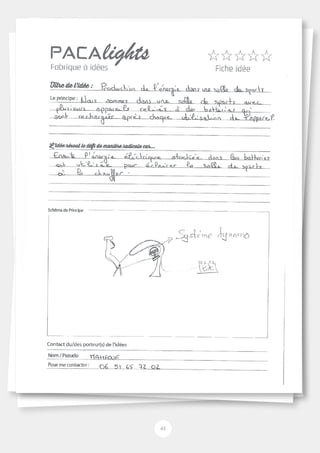 PACAlights
Fabrique à idées
Fiche Idée
Titre de l'idée : Production de l'énergie dans une salle de sports
Le principe : Nous sommes dans une salle de sports avec
plusieurs appareils reliés à des batteries qui
sont rechargées après chaque utilisation de l'appareil
L'idée résout le défi de manière radicale car...
Ensuite l'énergie électrique stockée dans les batteries
est utilisée pour éclairer la salle de sports
où la chauffer.
Schéma de Principe
Système dynamo
Contact du/des porteur(s) de l'idées
Nom / Pseudo
Pour me contacter : 06 51 65 72 02